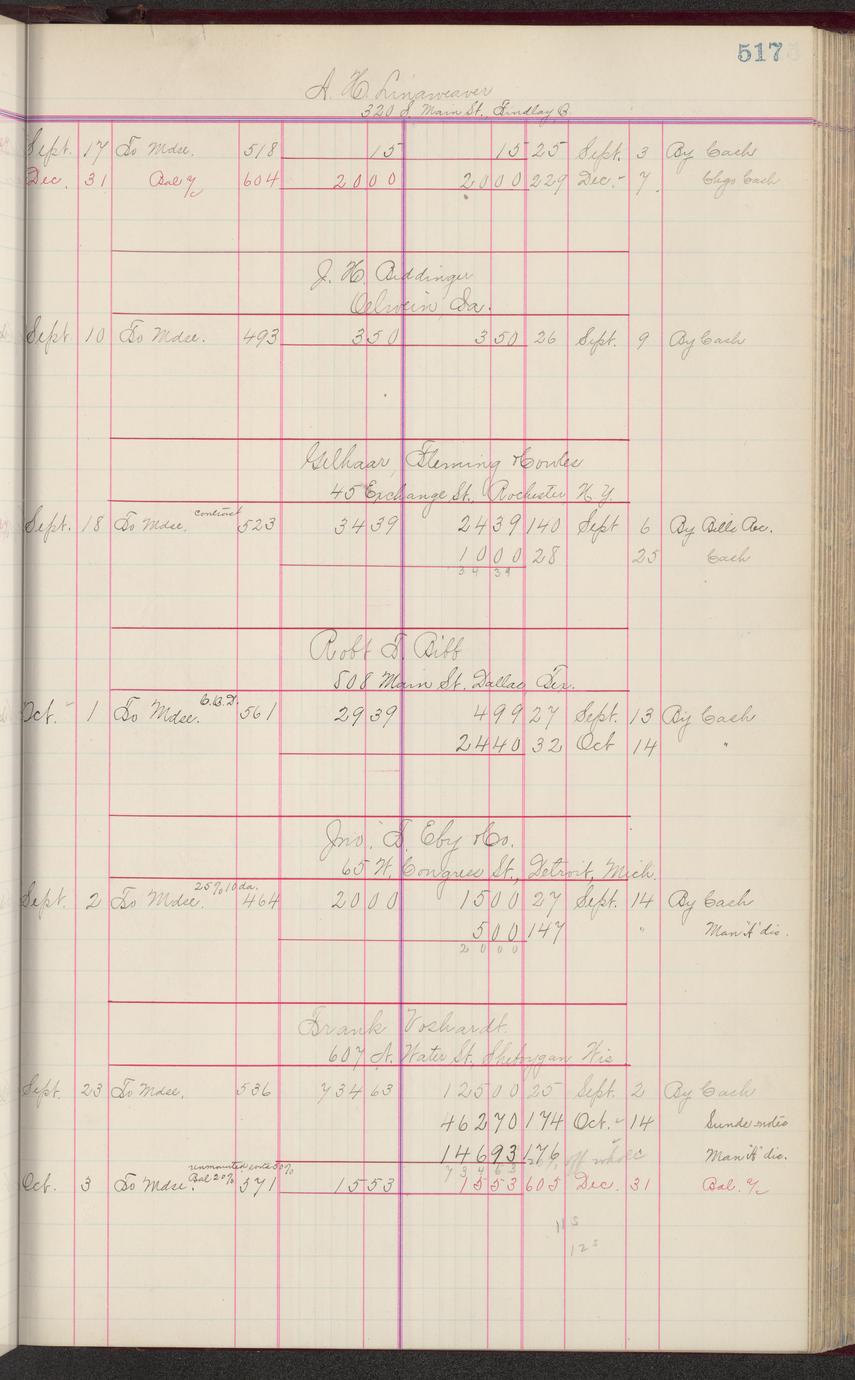 517
A. H. Linaweaver
320 S. Main St., Findlay O
Sept. 17 To Mdse. 518 15 15 25 Sept. 3 By Cash
Dec. 31 Bal % 604 2000 2000 229 Dec. 7 Chgo Cash
J. H. Biddinger
Oelwein, Ia.
Sept 10 To Mdse. 493 350 350 26 Sept. 9 By Cash
Gelhaar, Fleming
45 Exchange St., Rochester N.Y.
Sept. 18 To Mdse. contract 523 3439 2439 140 Sept 6 By Bills Rec.
1000 28 25 Cash
34 39
Robt T. Bibb
508 Main St. Dallas Tex.
Oct. 1 To Mdse. C.O.D. 561 2939 499 27 Sept. 13 By Cash
2440 32 Oct 14 "
Jno. T. Eby & Co.
65 W. Congress St., Detroit, Mich.
Sept. 2 To Mdse. 25% 10 da. 464 2000 1500 27 Sept. 14 By Cash
500 147 " Man "A" dis.
2000
Frank Voshardt.
607 N. Water St. Sheboygan Wis
Sept. 23 To Mdse. 536 73463 12500 25 Sept. 2 By Cash
46270 174 Oct. 14 Sunds notes
14693 176 20% off whole " Man "A" dis.
73463
Oct. 3 To Mdse. unmounted cuts 50% Bal 20% 571 1553 1553 605 Dec. 31 Bal. %
11 s
12 s